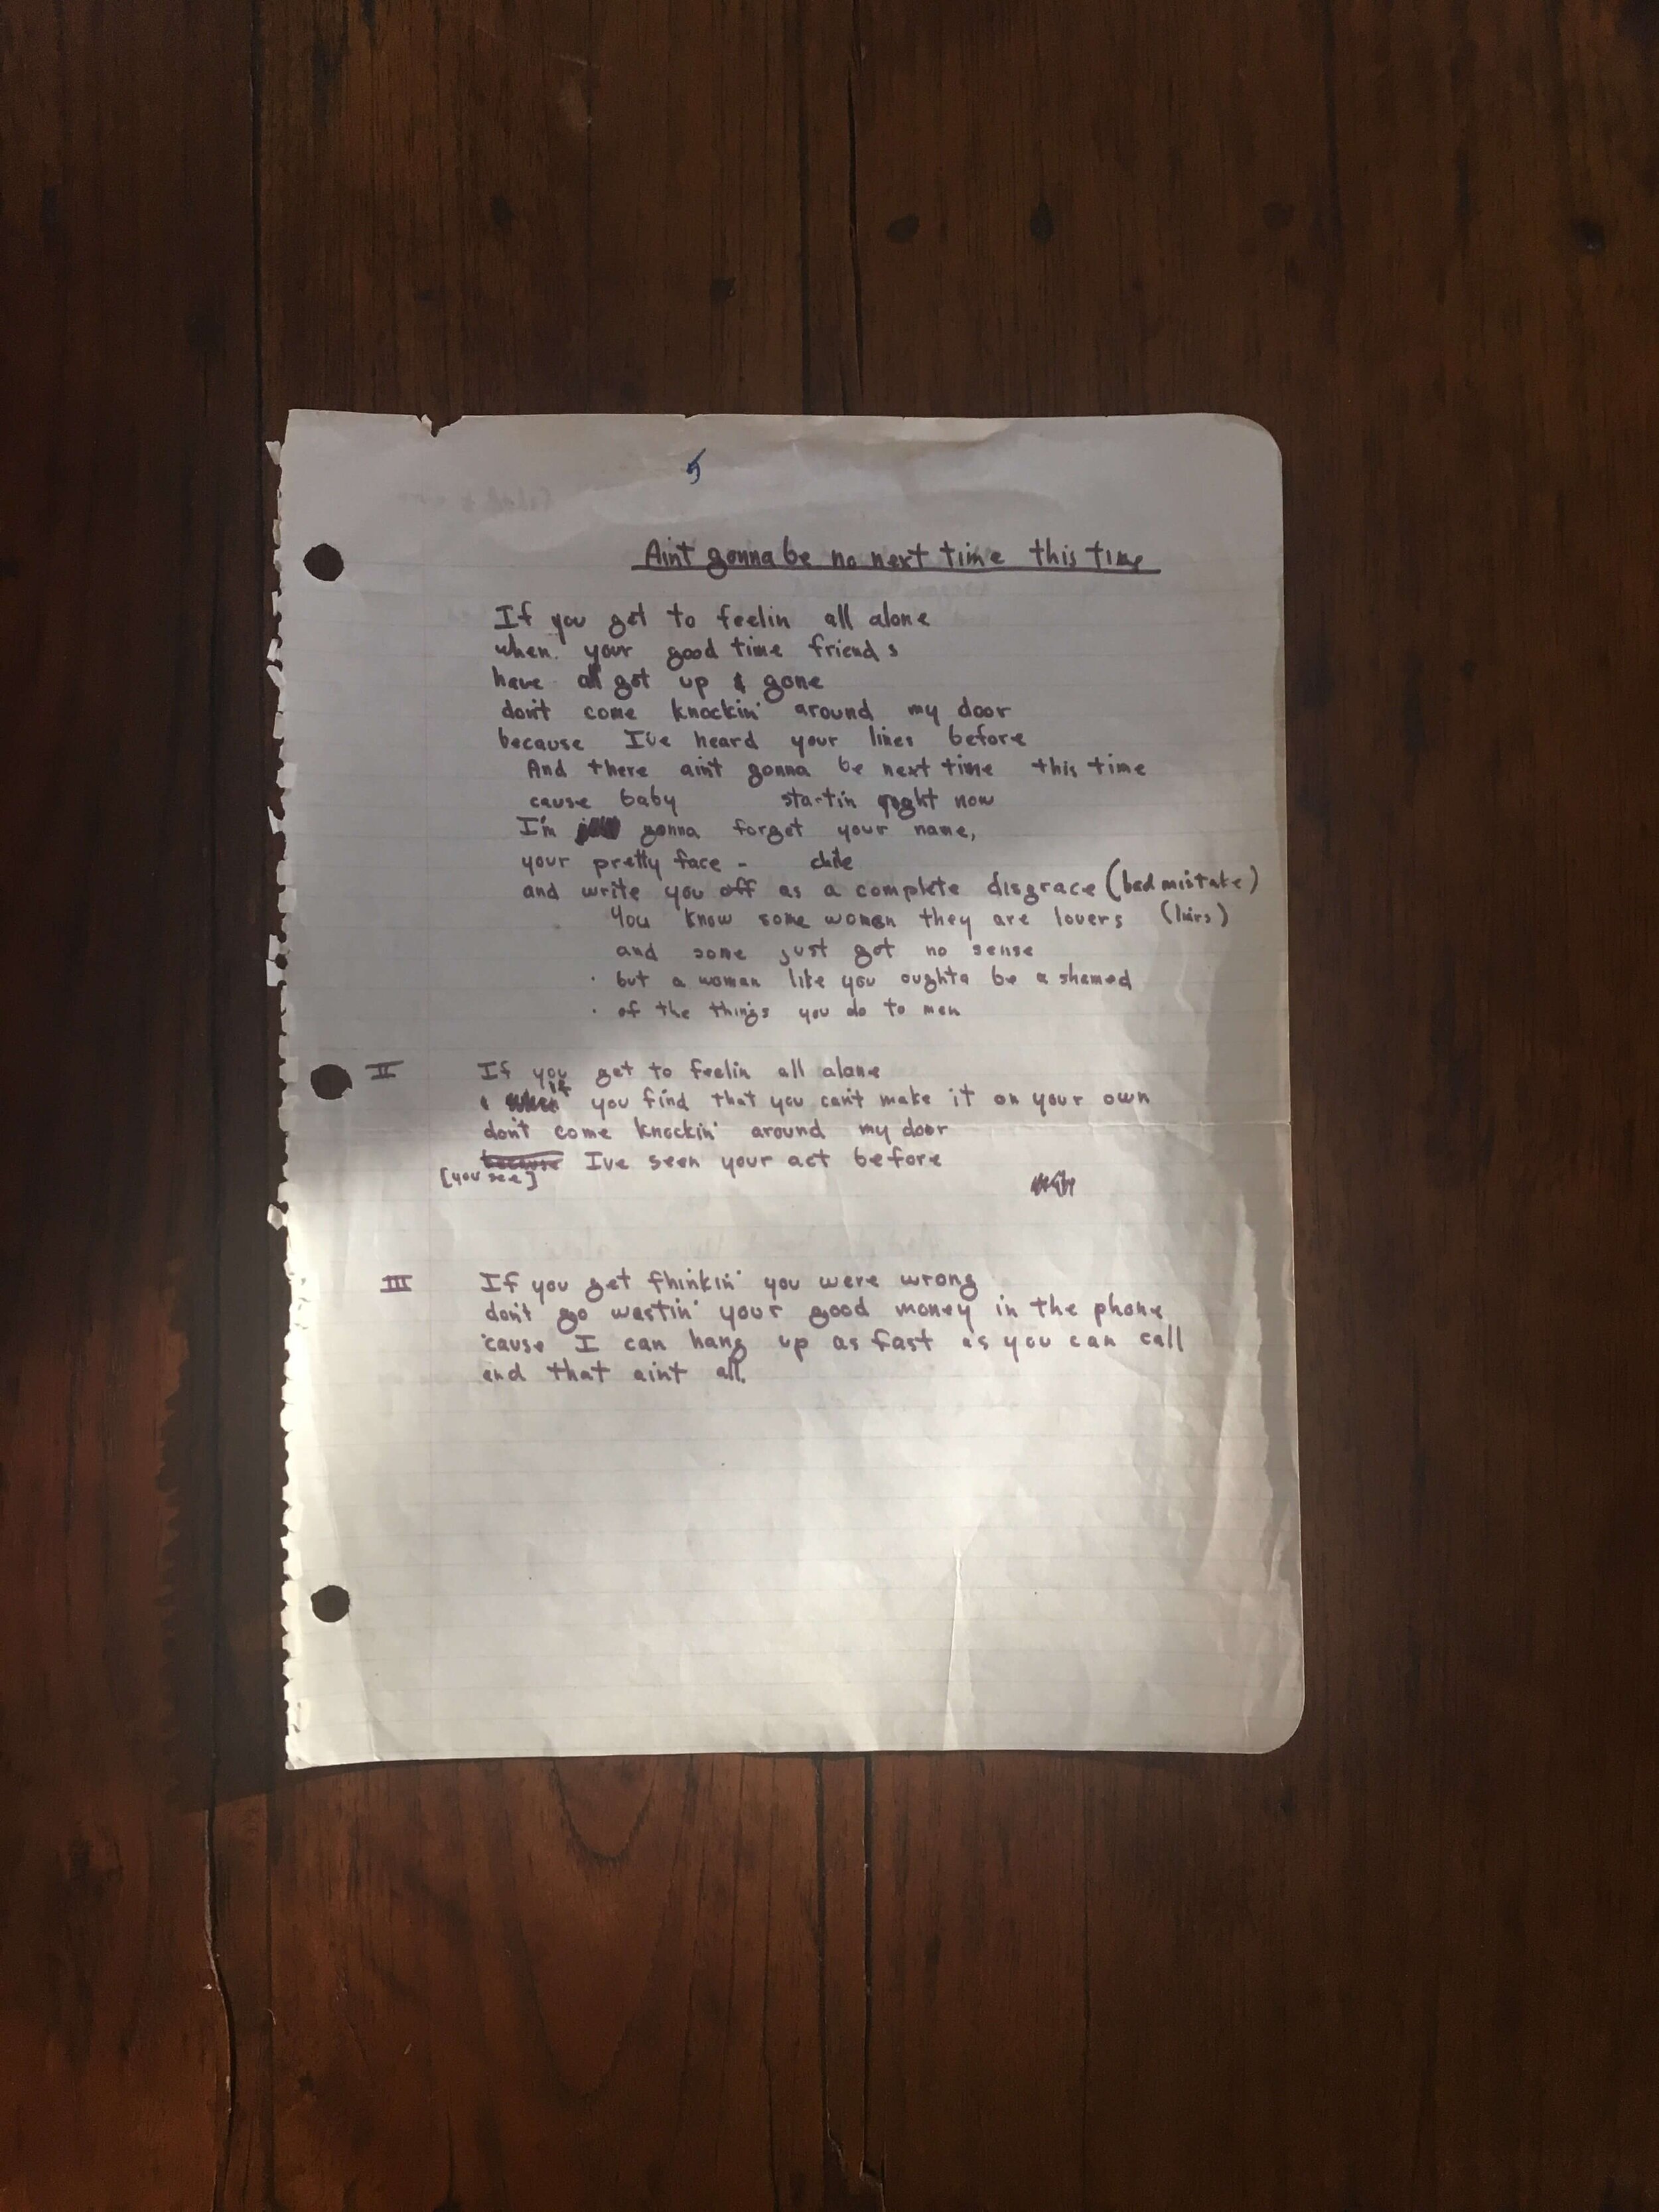 5
Aint gonna be no next time this time
If you get to feelin all alone
when your good time friends
have all got up & gone
don't come knockin' around my door
because I've heard your lines before
And there ain't gonna be next time this time
cause baby startin right now
I'm gonna forget your name,
your pretty face -
and write you off as a complete disgrace (bad mistake)
You know some women they are lovers (liars)
and some just got no sense
· but a woman like you oughta be a shamed
· of the things you do to men
II If you get to feelin all alone
if you find that you can't make it on your own
don't come knockin' around my door
because Ive seen your act before
[you see]
III If you get thinkin' you were wrong
don't go wastin' your good money in the phone
'cause I can hang up as fast as you can call
and that aint all.